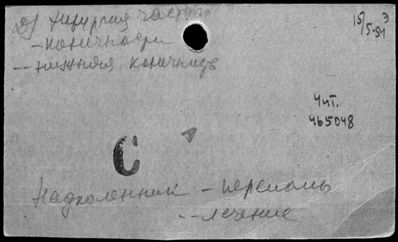 2) Хирургия частн.
- конечности
-- нижняя конечность
15/5-51 Э
Чит.
465048
С
Надколенник - переломы
-- лечение